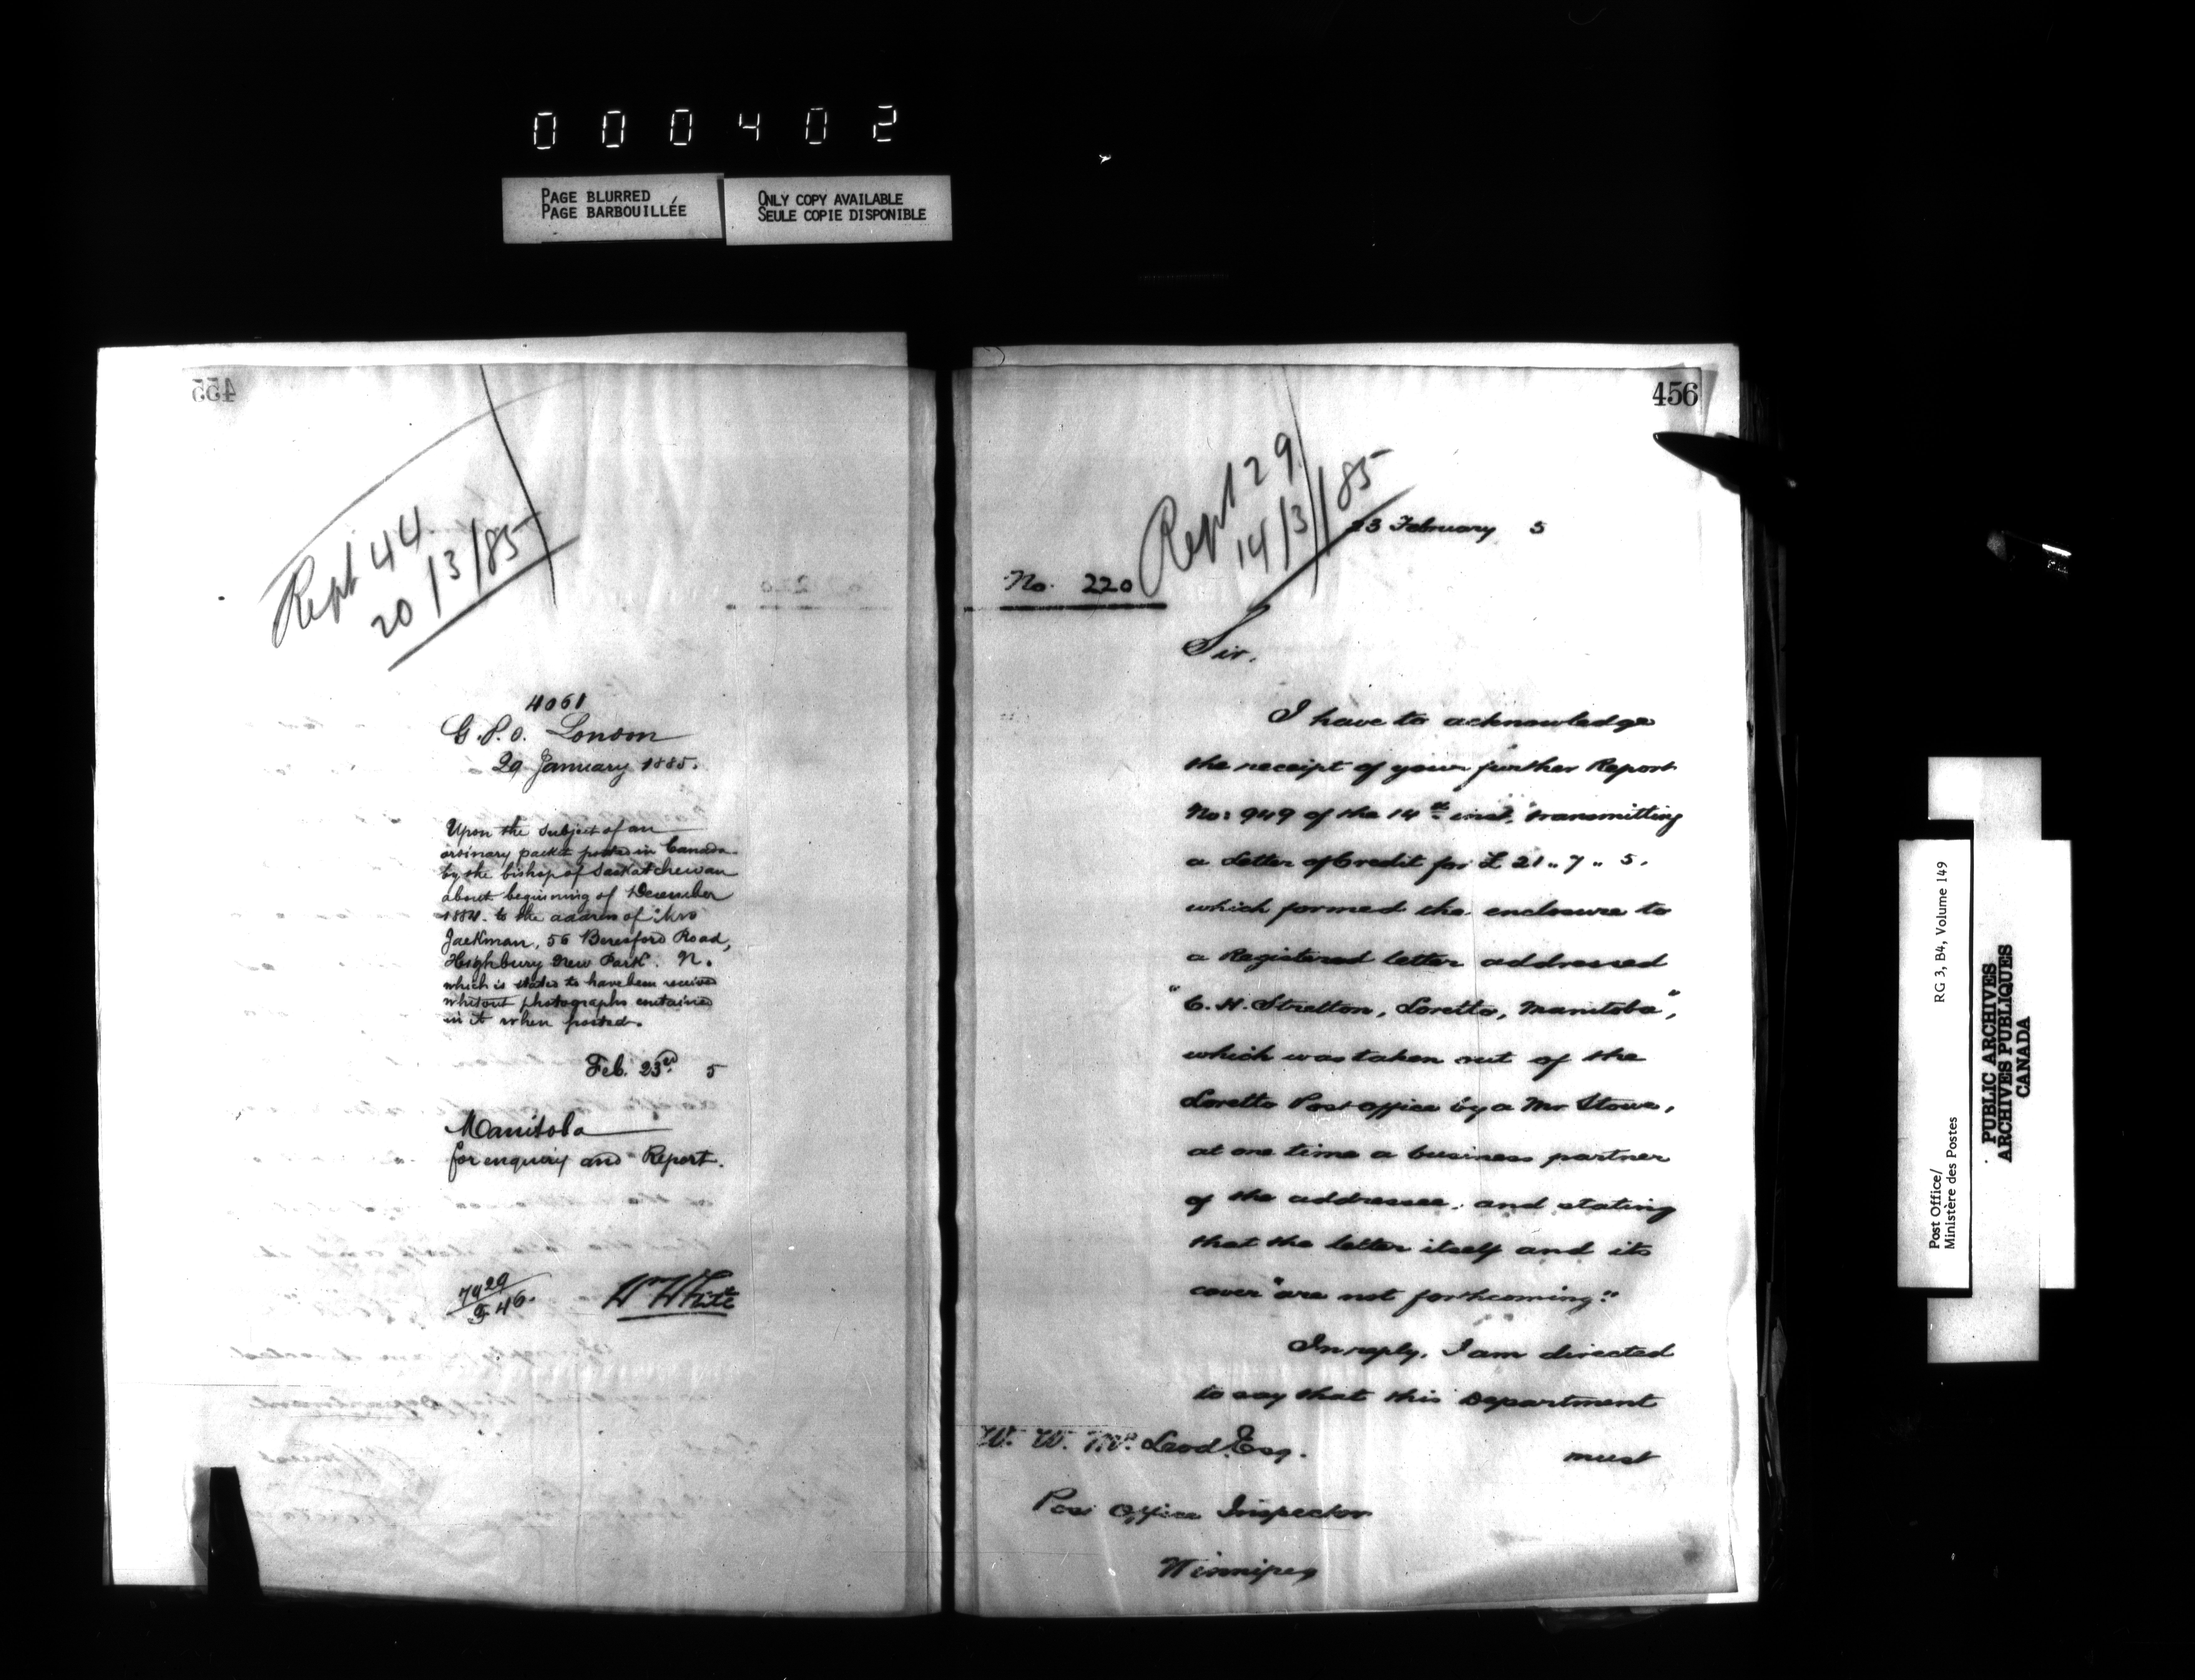 000402
PAGE BLURRED
PAGE BARBOUILLÉE
ONLY COPY AVAILABLE
SEULE COPIE DISPONIBLE
455
Rept 44
20/3/85
4061
G.P.O. London
29 January 1885.
Upon the subject of an
ordinary packet posted in Canada
by the bishop of Saskatchewan
about beginning of December
1884. to the address of Mrs
Jackman, 56 Beresford Road,
Highbury New Park. N.
which is stated to have been received
whitout photographs contained
in it when posted.
Feb. 23rd 5
Manitoba
for enquiry and Report.
W White
456
Rept 129
14/3/85
23 February 5
No. 220
Sir.
I have to acknowledge
the receipt of your further Report
No: 949 of the 14th inst. transmitting
a Letter of Credit for £ 21 „ 7 „ 5.
which formed the enclosure to
a Registered letter addressed
"C. H. Stretton, Loretto, Manitoba",
which was taken out of the
Loretto Post office by a Mr Stowe,
at one time a business partner
of the addressee, and stating
that the letter itself and its
cover "are not forthcoming."
In reply, I am directed
to say that this Department
must
W. W. McLeod Esq.
Post Office Inspector
Winnipeg
Post Office/
Ministère des Postes
RG 3, B4, Volume 149
PUBLIC ARCHIVES
ARCHIVES PUBLIQUES
CANADA